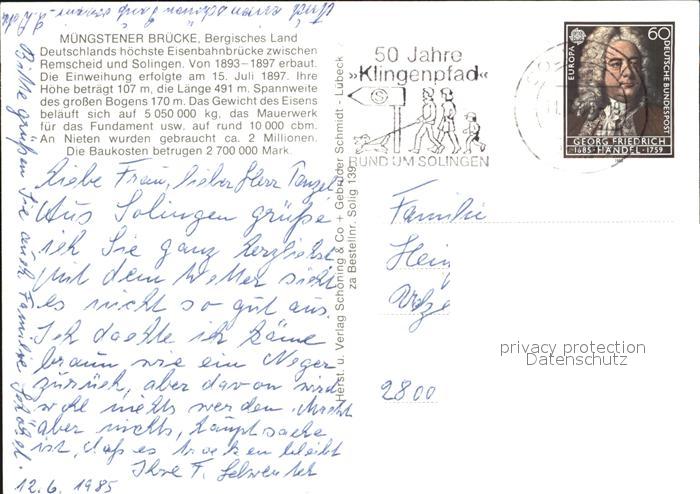 MÜNGSTENER BRÜCKE, Bergisches Land
Deutschlands höchste Eisenbahnbrücke zwischen
Remscheid und Solingen. Von 1893–1897 erbaut.
Die Einweihung erfolgte am 15. Juli 1897. Ihre
Höhe beträgt 107 m, die Länge 491 m. Spannweite
des großen Bogens 170 m. Das Gewicht des Eisens
beläuft sich auf 5 050 000 kg, das Mauerwerk
für das Fundament usw. auf rund 10 000 cbm.
An Nieten wurden gebraucht ca. 2 Millionen.
Die Baukosten betrugen 2 700 000 Mark.
Liebe Frau, lieber Herr
Aus Solingen grüße
ich Sie ganz herzlichst
mit dem Wetter sieht
es nicht so gut aus.
Ich dachte ich käme
braun wie ein Neger
zurück, aber davon wird
wohl nichts werden. Macht
aber nichts, Hauptsache
ist, daß es trocken bleibt
Ihre F.
12.6.1985
Bitte grüßen Sie auch Familie
Herst. u. Verlag Schöning & Co + Gebrüder Schmidt - Lübeck
za Bestellnr. Solig 139
50 Jahre
»Klingenpfad«
S
RUND UM SOLINGEN
EUROPA
60
DEUTSCHE BUNDESPOST
GEORG FRIEDRICH
1685 · HÄNDEL · 1759
Familie
Hein
2800
privacy protection
Datenschutz